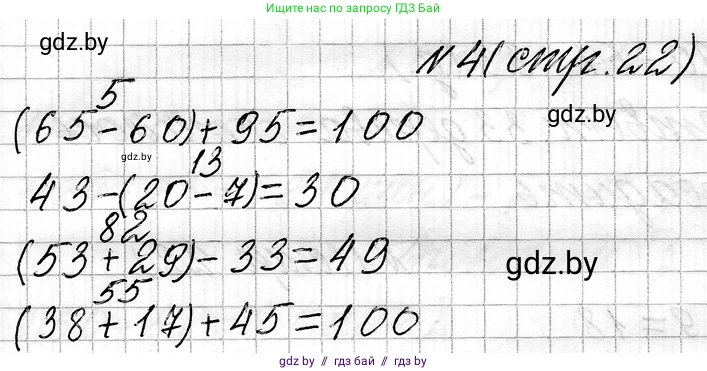 Ищите нас по запросу ГДЗ Бай
gdz.by
№ 4 (стр. 22)
gdz.by
5
(65 - 60) + 95 = 100
gdz.by
13
43 - (20 - 7) = 30
82
(53 + 29) - 33 = 49
gdz.by
55
(38 + 17) + 45 = 100
gdz.by // гдз бай // гдз.бу